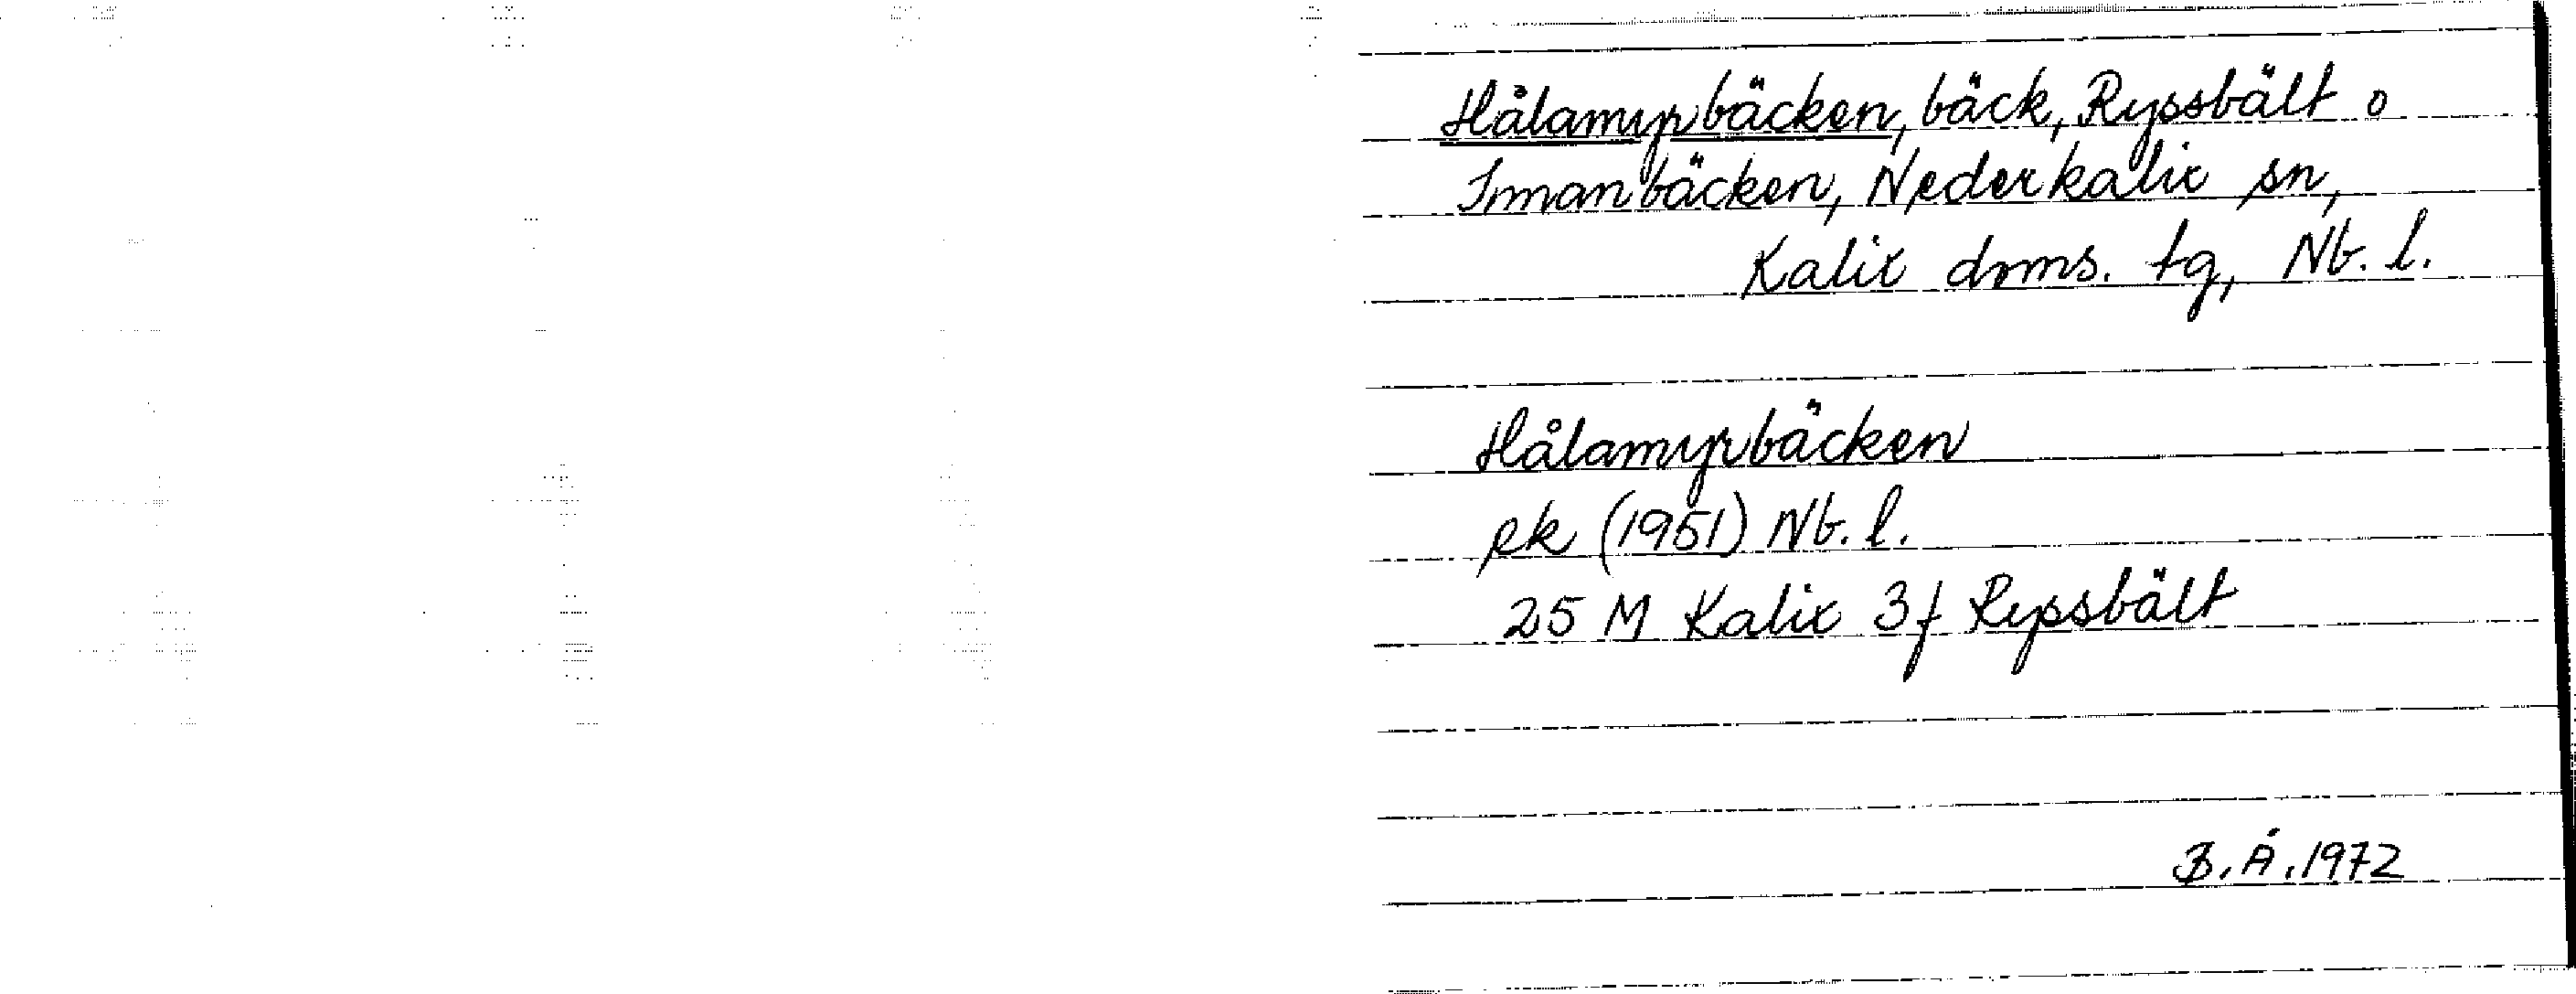 Hålamyrbäcken, bäck, Ryssbält o
Innanbäcken, Nederkalix sn,
Kalix doms. tg, Nb. l.
Hålamyrbäcken
ek (1951) Nb. l.
25 M Kalix 3f Ryssbält
B.Å.1972